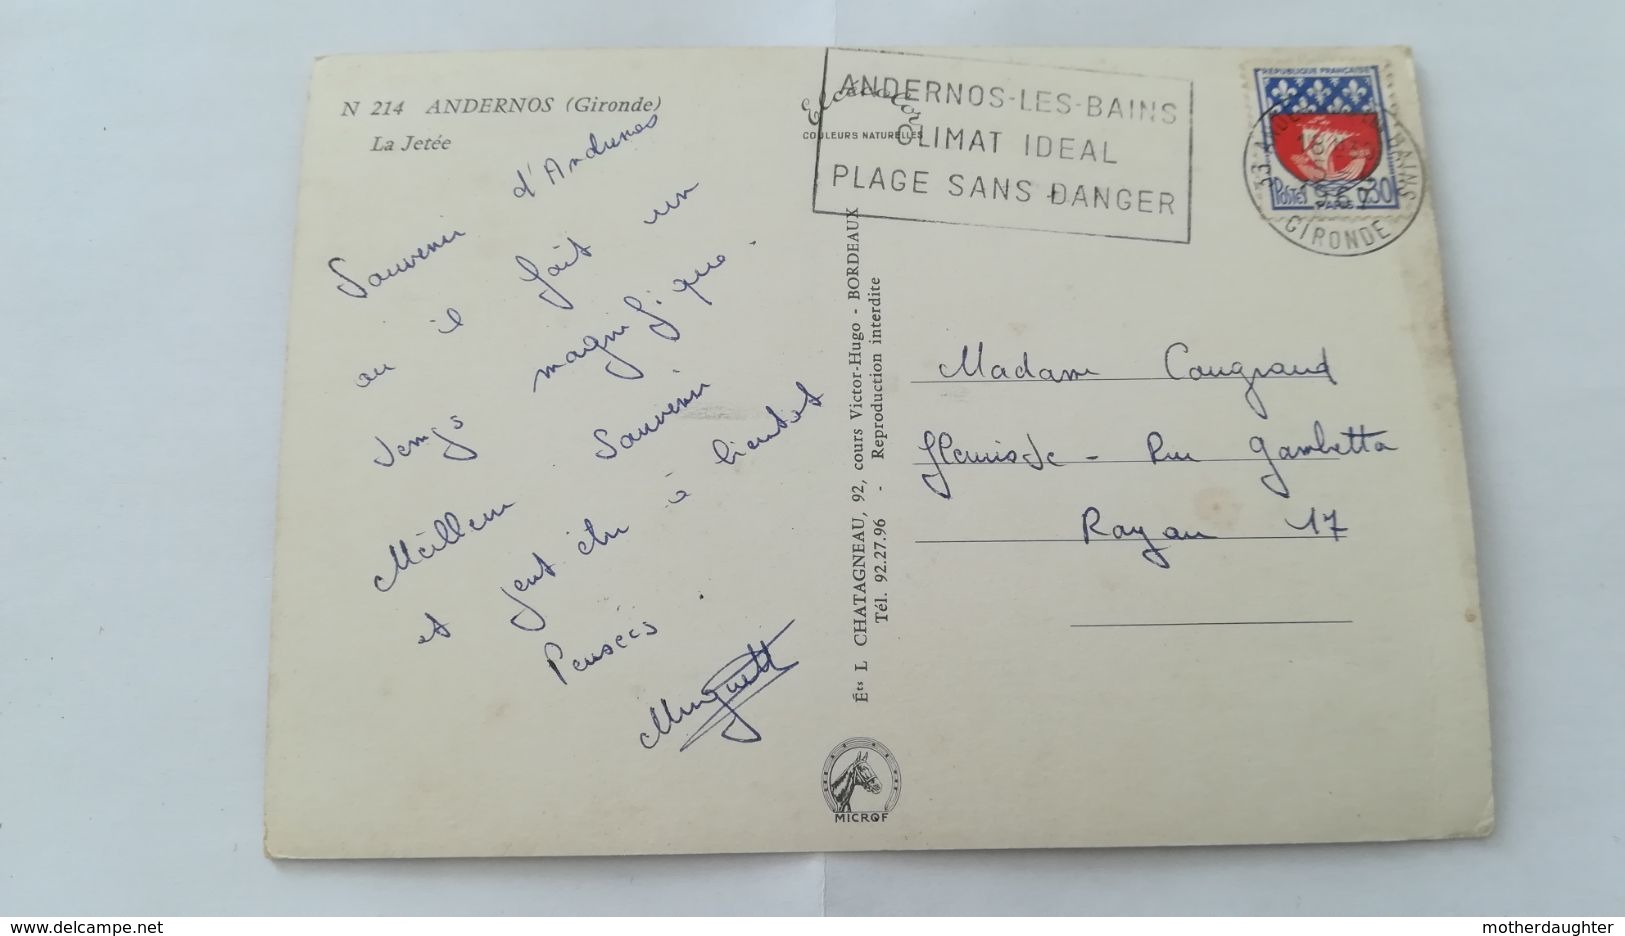 N 214 ANDERNOS (Gironde)
La Jetée
COULEURS NATURELLES
ANDERNOS-LES-BAINS
CLIMAT IDEAL
PLAGE SANS DANGER
REPUBLIQUE FRANÇAISE
POSTES 0,30
PARIS
GIRONDE
Souvenir d'Andernos
ou il fait un
temps magnifique.
Meilleur Souvenir
et peut être à bientot
Pensées.
Muguett
Éts L CHATAGNEAU, 92, cours Victor-Hugo - BORDEAUX
Tél. 92.27.96 - Reproduction interdite
Madame Cougrand
fleuriste - Rue Gambetta
Royan 17
MICROF
www.delcampe.net
motherdaughter